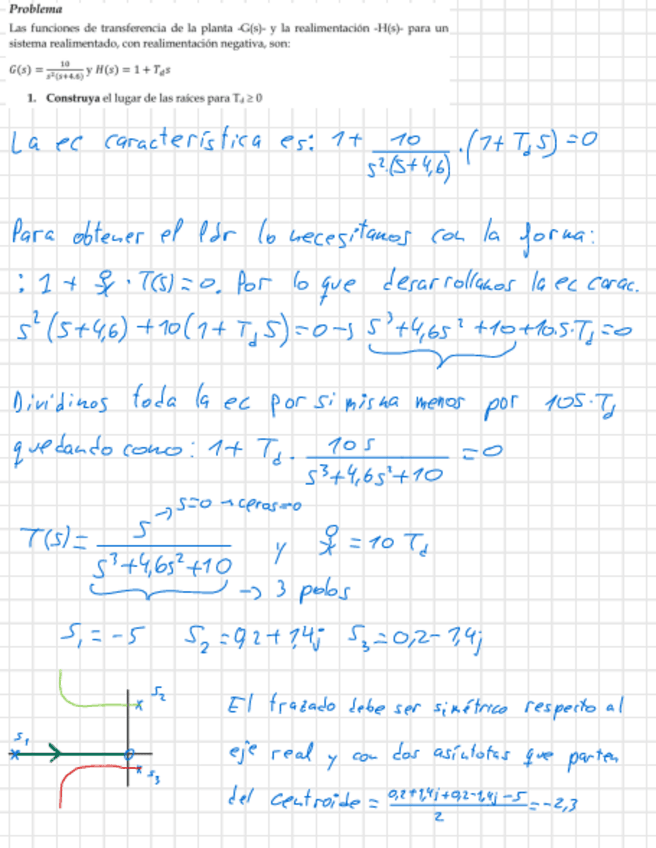 Problema
Las funciones de transferencia de la planta -G(s)- y la realimentación -H(s)- para un
sistema realimentado, con realimentación negativa, son:
G(s) = 10/(s²(s+4.6)) y H(s) = 1 + T_d s
1. Construya el lugar de las raíces para T_d ≥ 0
La ec característica es: 1 + 10/(s²·(s+4,6)) · (1 + T_d S) = 0
Para obtener el ldr lo necesitamos con la forma:
: 1 + · T(s) = 0. Por lo que desarrollamos la ec carac.
s²(s+4,6) + 10(1 + T_d S) = 0 → s³+4,6s²+10+10.s.T_d = 0
Dividimos toda la ec por si misma menos por 10s·T_d
quedando como: 1 + T_d · 10s/(s³+4,6s²+10) = 0
→ s=0 → ceros=0
T(s) = s/(s³+4,6s²+10) y = 10 T_d
→ 3 polos
S₁ = -5 S₂ = 0,2+1,4j S₃ = 0,2-1,4j
S₂
S₁
S₃
El trazado debe ser simétrico respecto al
eje real y con dos asíntotas que parten
del centroide = (0,2+1,4j+0,2-1,4j-5)/2 = -2,3